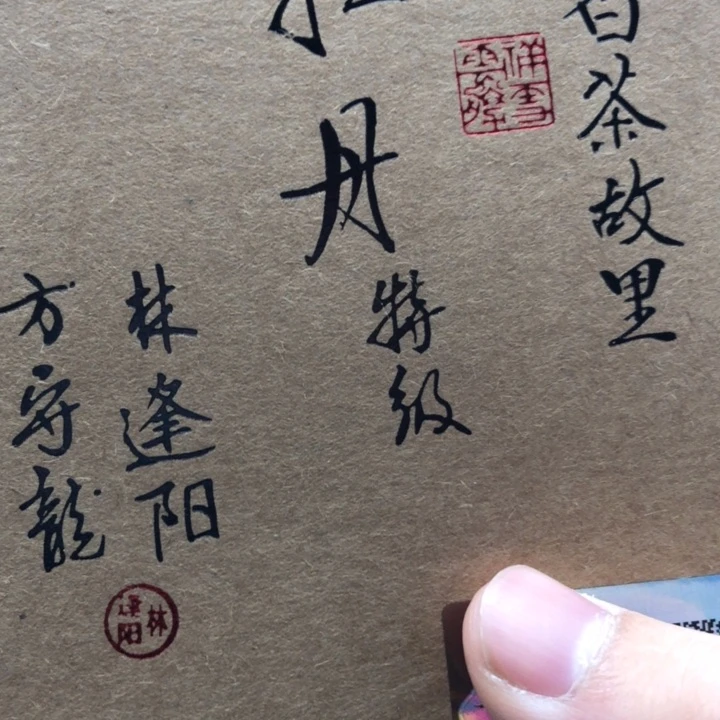 白茶故里
牡丹
特级
林逢阳
方守龙
林逢阳